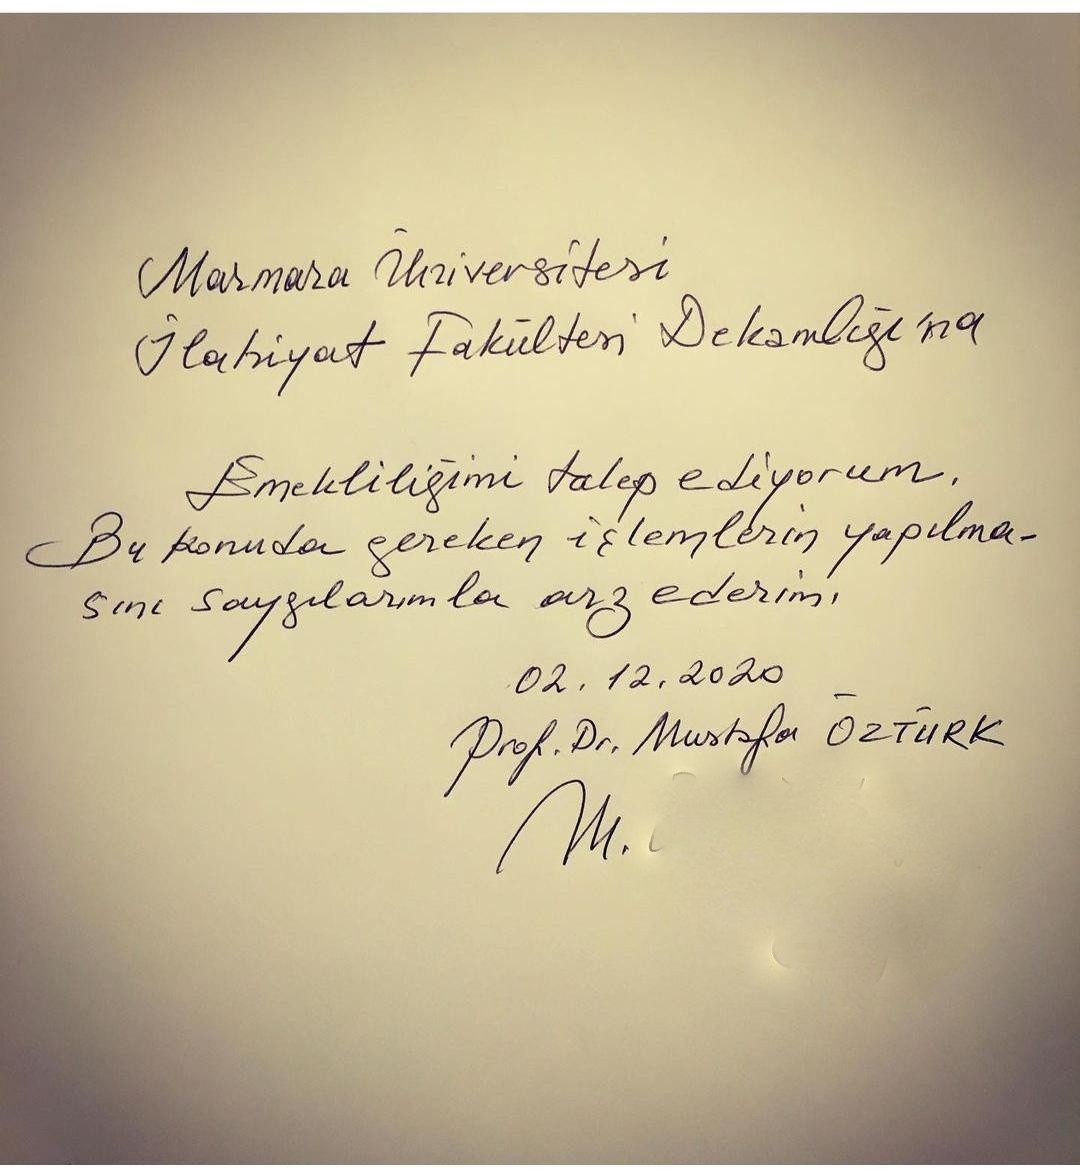 Marmara Üniversitesi
İlahiyat Fakültesi Dekanlığı'na
Emekliliğimi talep ediyorum.
Bu konuda gereken işlemlerin yapılma-
sını saygılarımla arz ederim.
02.12.2020
Prof. Dr. Mustafa ÖZTÜRK
M.